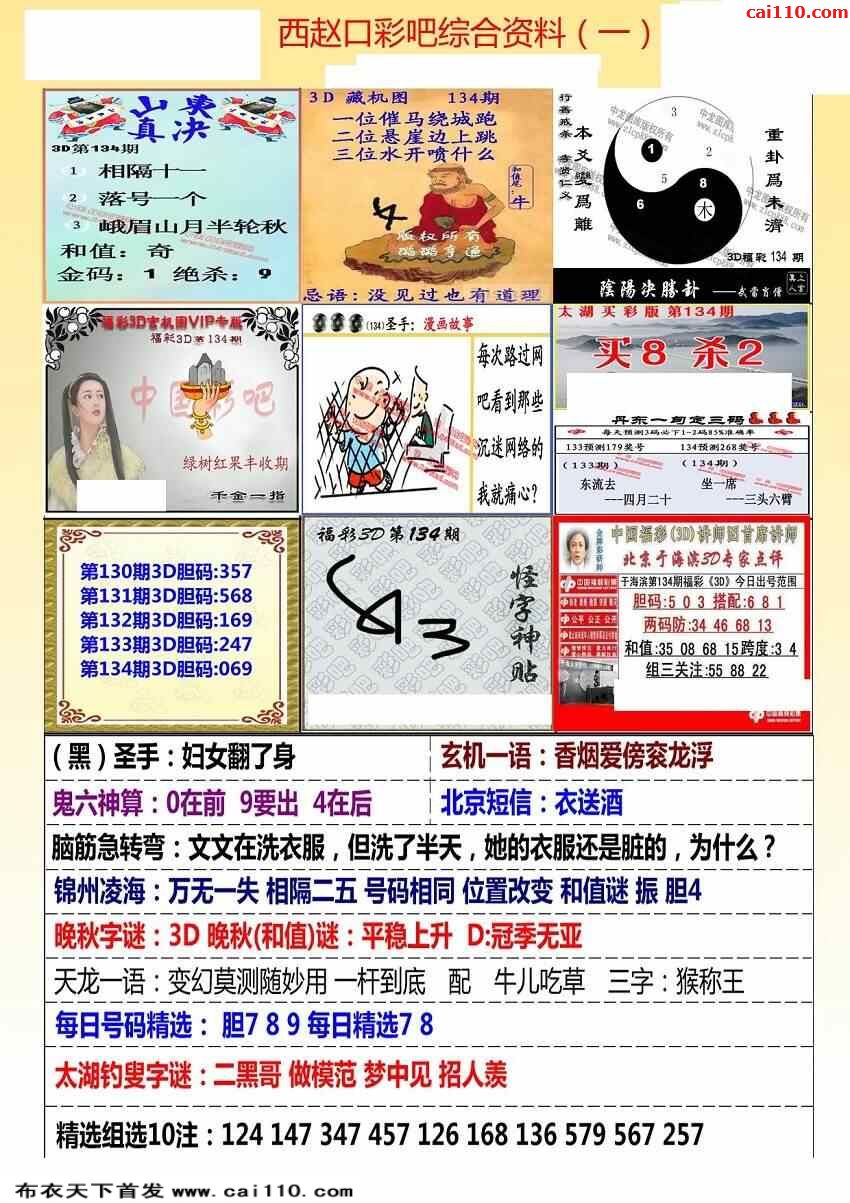 cai110.com
西赵口彩吧综合资料（一）
山 夷
真决
3D第134期
1 相隔十一
2 落号一个
3 峨眉山月半轮秋
和值：奇
金码：1 绝杀：9
3D 藏机图 134期
一位催马绕城跑
二位悬崖边上跳
三位水开喷什么
和值尾：牛
版权所有
忌语：没见过也有道理
行善戒杀 孝贤仁义
本爻變爲離
重卦爲未濟
中龙图库版权所有
www.zlcptk.com
3
1
2
5
8
6
木
3D福彩134期
陰陽決勝卦——武當肖僧
福彩3D玄机图VIP专版
福彩3D第134期
中国彩吧
绿树红果丰收期
千金一指
(134)圣手：漫画故事
每次路过网
吧看到那些
沉迷网络的
我就痛心？
太湖买彩版 第134期
买8 杀2
丹东一句定三码
每天预测3码必下1-2码85%准确率
133预测179奖号 134预测268奖号
（133期） （134期）
东流去 坐一席
---四月二十 ---三头六臂
第130期3D胆码:357
第131期3D胆码:568
第132期3D胆码:169
第133期3D胆码:247
第134期3D胆码:069
福彩3D第134期
怪字神贴
中国福彩(3D)讲师团首席讲师
北京于海滨3D专家点评
于海滨第134期福彩《3D》今日出号范围
胆码:5 0 3 搭配:6 8 1
两码防:34 46 68 13
和值:35 08 68 15 跨度:3 4
组三关注:55 88 22
中国福利彩票
公平 公正 公开
（黑）圣手：妇女翻了身
玄机一语：香烟爱傍衮龙浮
鬼六神算：0在前 9要出 4在后
北京短信：衣送酒
脑筋急转弯：文文在洗衣服，但洗了半天，她的衣服还是脏的，为什么？
锦州凌海：万无一失 相隔二五 号码相同 位置改变 和值谜 振 胆4
晚秋字谜：3D 晚秋(和值)谜：平稳上升 D:冠季无亚
天龙一语：变幻莫测随妙用 一杆到底 配 牛儿吃草 三字：猴称王
每日号码精选： 胆7 8 9 每日精选7 8
太湖钓叟字谜：二黑哥 做模范 梦中见 招人羡
精选组选10注：124 147 347 457 126 168 136 579 567 257
布衣天下首发 www.cai110.com